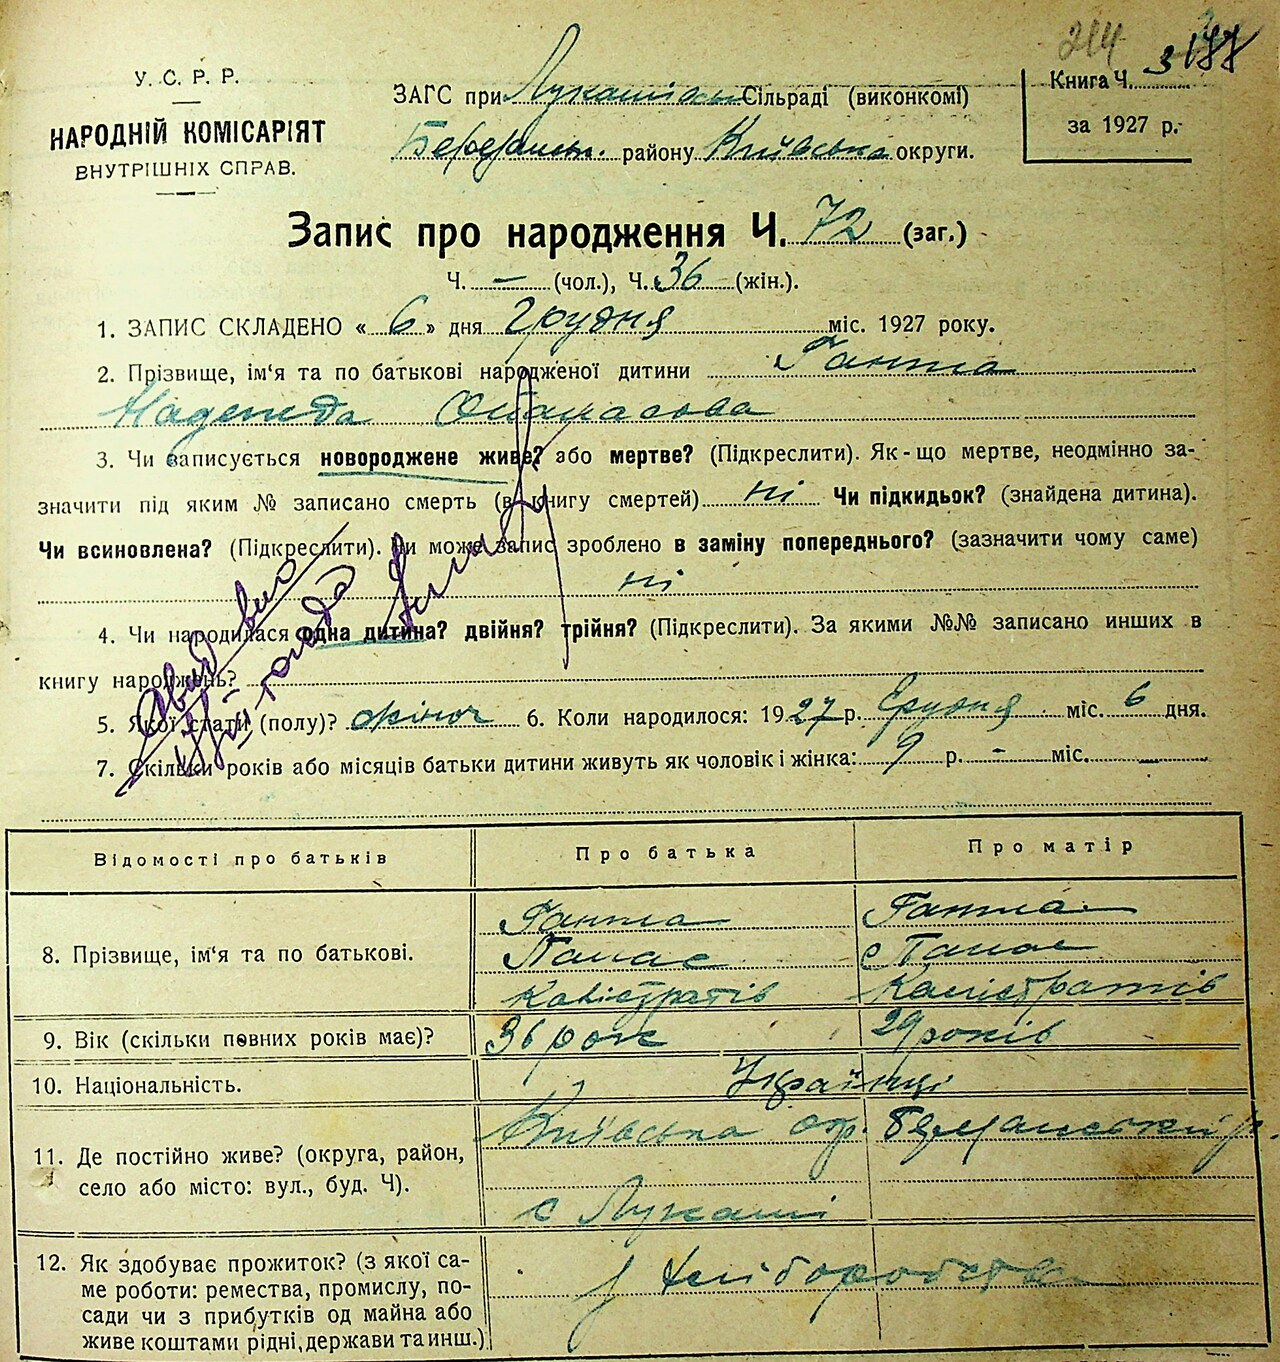 214
3 188
У. С. Р. Р.
НАРОДНІЙ КОМІСАРІЯТ
ВНУТРІШНІХ СПРАВ.
ЗАГС при Лукашівськ Сільраді (виконкомі)
району Київська округи.
Книга Ч.
за 1927 р.
Запис про народження Ч. 72 (заг.)
Ч. — (чол.), Ч. 36 (жін.).
1. ЗАПИС СКЛАДЕНО « 6 » дня Грудня міс. 1927 року.
2. Прізвище, ім'я та по батькові народженої дитини
Надежда
3. Чи записується новороджене живе? або мертве? (Підкреслити). Як-що мертве, неодмінно за-
значити під яким № записано смерть (в книгу смертей) ні Чи підкидьок? (знайдена дитина).
Чи всиновлена? (Підкреслити). Чи може запис зроблено в заміну попереднього? (зазначити чому саме)
ні
4. Чи народилася одна дитина? двійня? трійня? (Підкреслити). За якими №№ записано инших в
книгу народжень?
5. Якої стати (полу)? жіноч 6. Коли народилося: 1927 р. Грудня міс. 6 дня.
7. Скільки років або місяців батьки дитини живуть як чоловік і жінка: 9 р. - міс.
Відомості про батьків
Про батька
Про матір
8. Прізвище, ім'я та по батькові.
Панас
9. Вік (скільки повних років має)?
36 рок
29 років
10. Національність.
Українці
11. Де постійно живе? (округа, район,
село або місто: вул., буд. Ч).
Київська окр.
с Лукаші
12. Як здобуває прожиток? (з якої са-
ме роботи: ремества, промислу, по-
сади чи з прибутків од майна або
живе коштами рідні, держави та инш.)
з хліборобства